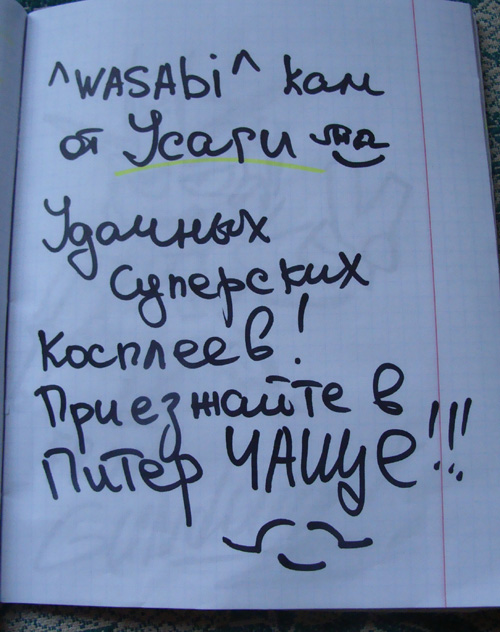 ^WASAbi^ кам
от Усаги
Удачных
Суперских
Косплеев!
Приезжайте в
Питер ЧАЩЕ!!!